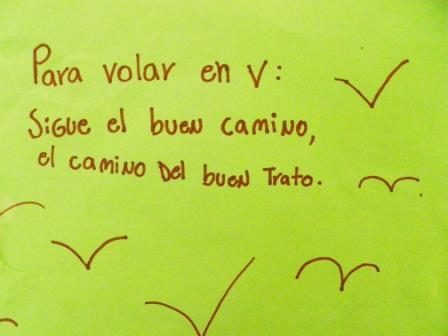 Para volar en V:
Sigue el buen camino,
el camino Del buen Trato.